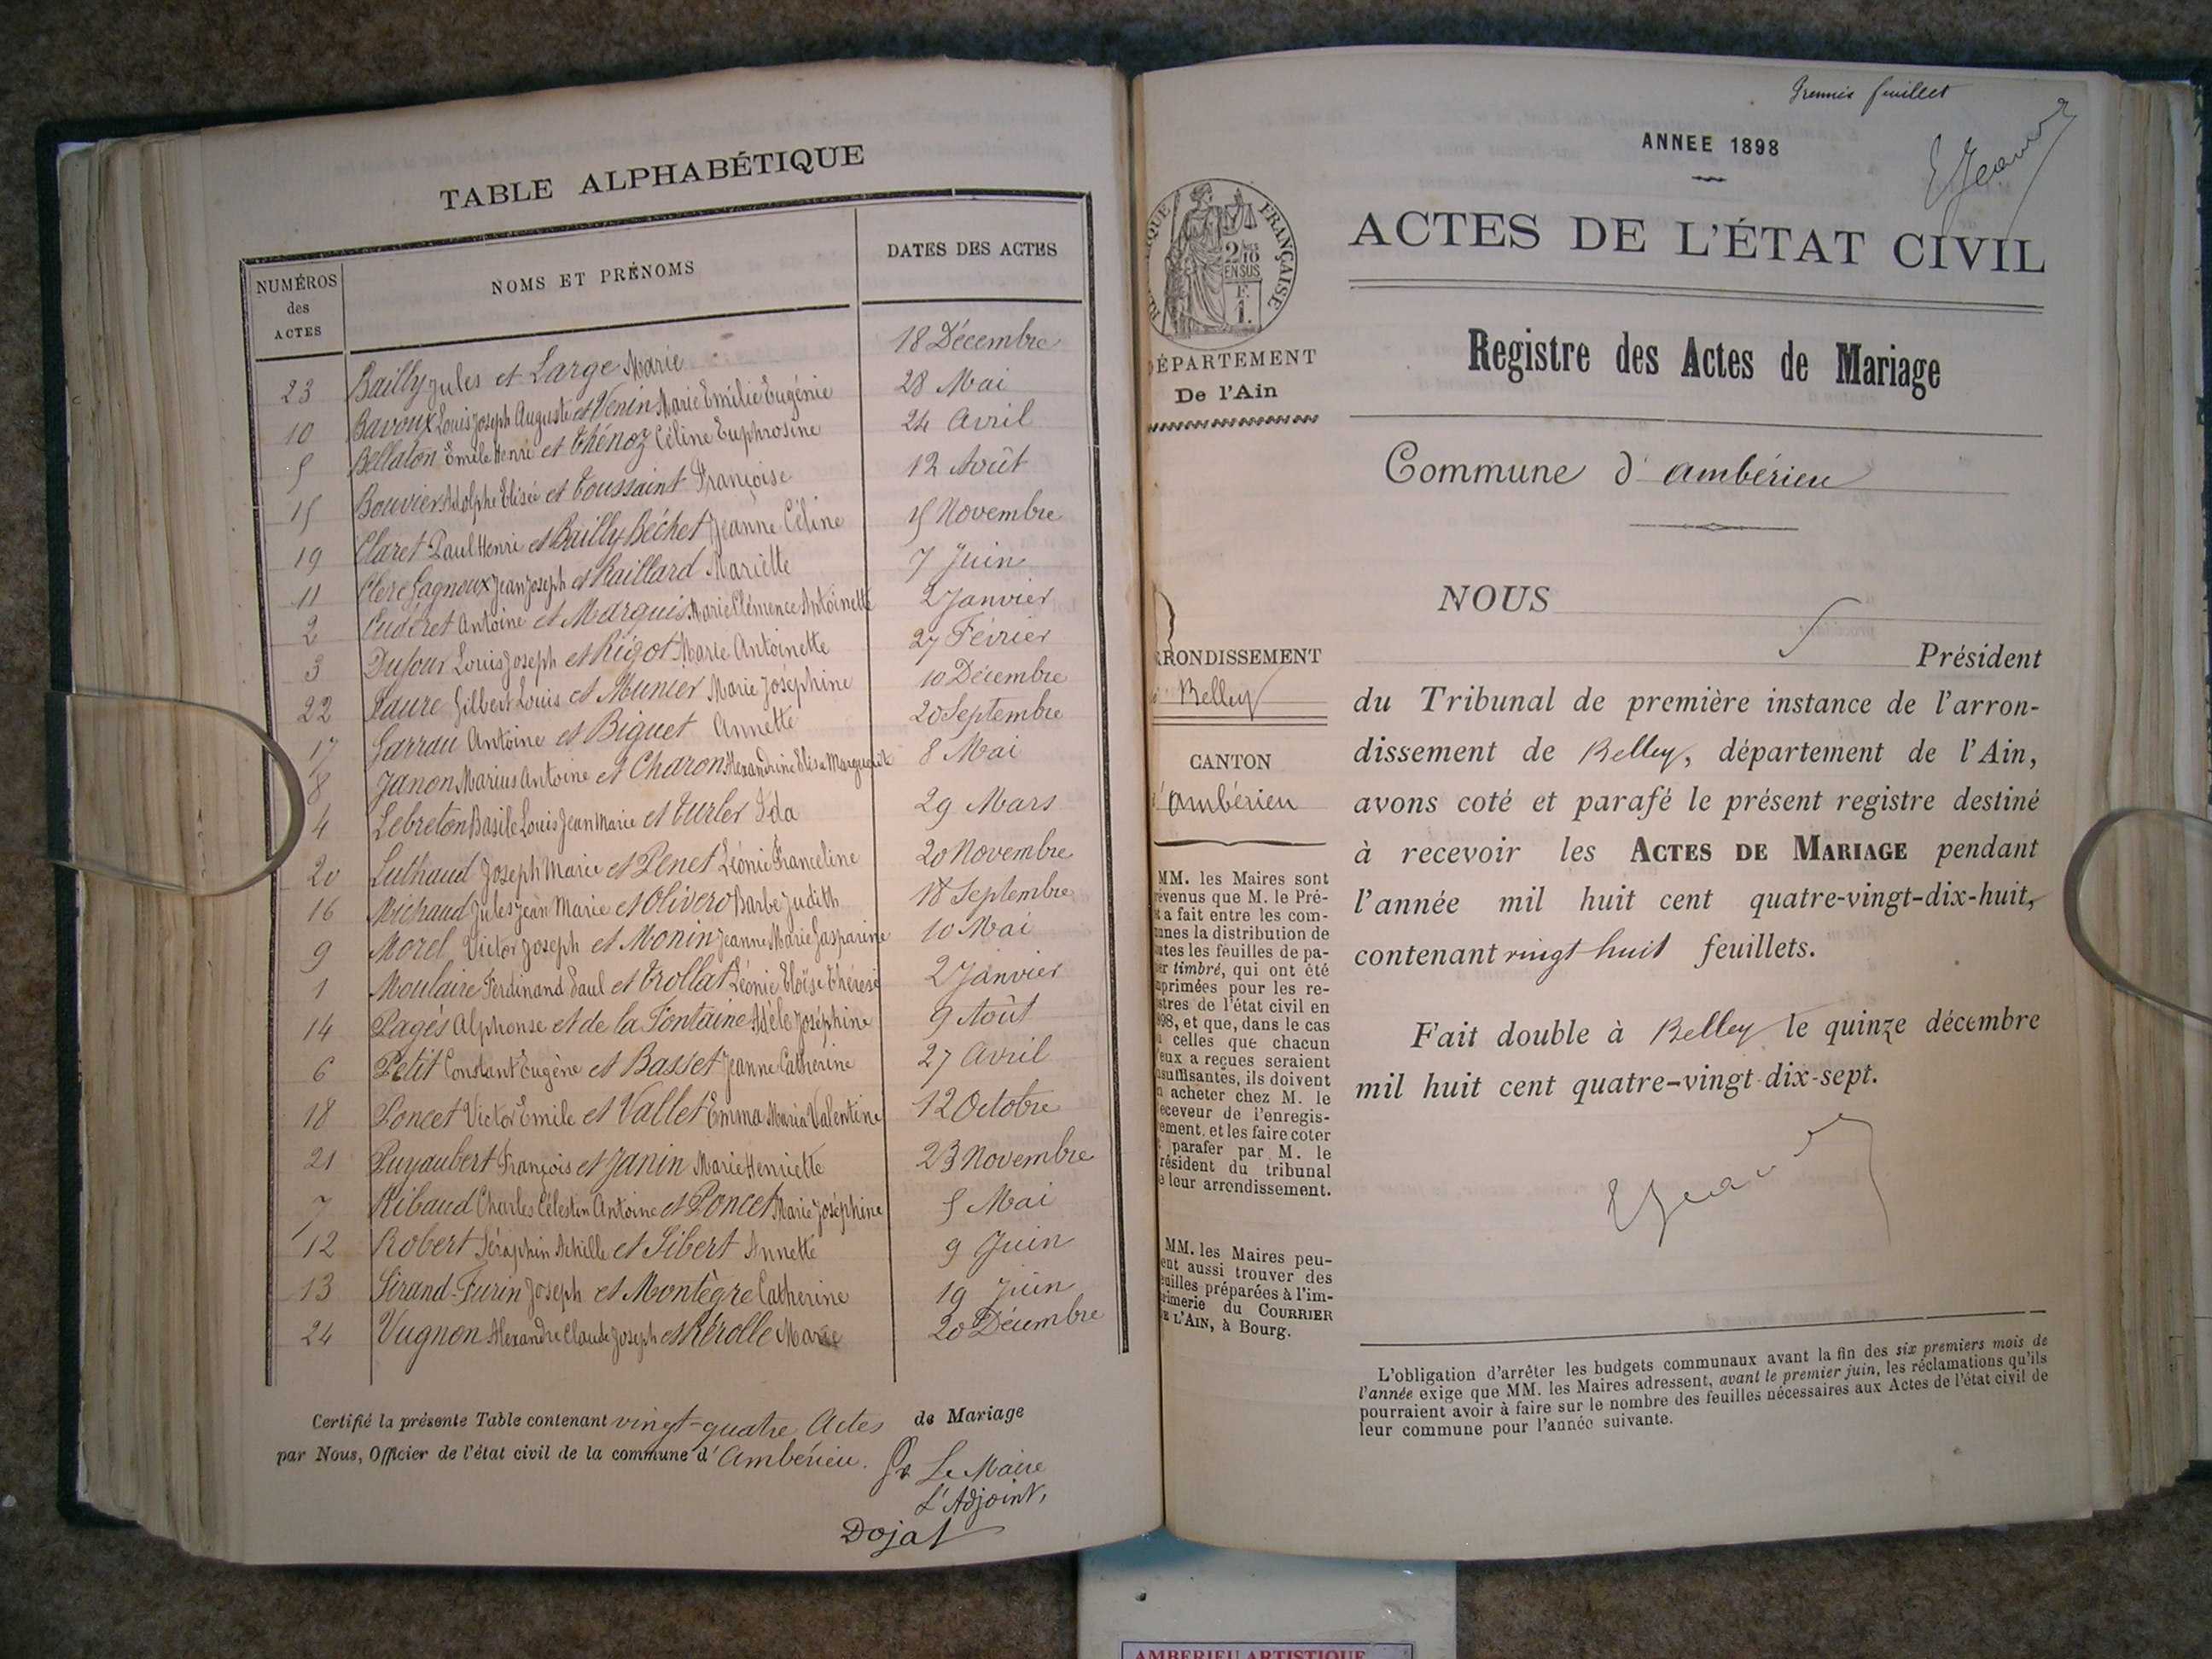 TABLE ALPHABÉTIQUE
NUMÉROS des ACTES
NOMS ET PRÉNOMS
DATES DES ACTES
23 Bailly Jules et Large Marie 18 Décembre
10 Bavoux Louis Joseph Auguste et Venin Marie Emilie Eugénie 28 Mai
5 Bellaton Emile Henri et Thénoz Céline Euphrosine 24 Avril
15 Bouvier Adolphe Elisée et Toussaint Françoise 12 Août
19 Claret Paul Henri et Bailly Béchet Jeanne Céline 15 Novembre
11 Clerc Gagnoux Jean Joseph et Raillard Mariette 7 Juin
2 Cudéret Antoine et Marquis Marie Clémence Antoinette 2 Janvier
3 Dufour Louis Joseph et Rigot Marie Antoinette 27 Février
22 Faure Gilbert Louis et Munier Marie Joséphine 10 Décembre
17 Garrau Antoine et Biguet Annette 20 Septembre
8 Janon Marius Antoine et Charon Alexandrine Elisa Marguerite 8 Mai
4 Lebreton Basile Louis Jean Marie et Turler Ida 29 Mars
20 Luthaud Joseph Marie et Penet Léonie Franceline 20 Novembre
16 Michaud Jules Jean Marie et Olivero Barbe Judith 18 Septembre
9 Morel Victor Joseph et Monin Jeanne Marie Gasparine 10 Mai
1 Moulaire Ferdinand Paul et Trollat Léonie Eloïse Thérèse 2 Janvier
14 Pagès Alphonse et de la Fontaine Adèle Joséphine 9 Août
6 Petit Constant Eugène et Basset Jeanne Catherine 27 Avril
18 Poncet Victor Emile et Vallet Emma Maria Valentine 12 Octobre
21 Puyaubert François et Janin Marie Henriette 23 Novembre
7 Ribaud Charles Célestin Antoine et Poncet Marie Joséphine 5 Mai
12 Robert Séraphin Achille et Sibert Annette 9 Juin
13 Sirand-Furin Joseph et Montègre Catherine 19 Juin
24 Vugnon Alexandre Claude Joseph et Rérolle Marie 20 Décembre
Certifié la présente Table contenant vingt-quatre Actes de Mariage
par Nous, Officier de l'état civil de la commune d'Ambérieu.
Pr Le Maire
L'Adjoint,
Dojat
Premier feuillet
ANNEE 1898
ACTES DE L'ÉTAT CIVIL
QUE FRANÇAISE
2/10
EN SUS
F.
1.
DÉPARTEMENT
De l'Ain
Registre des Actes de Mariage
Commune d'Ambérieu
RONDISSEMENT
Belley
CANTON
d'Ambérieu
NOUS
Président
du Tribunal de première instance de l'arron-
dissement de Belley, département de l'Ain,
avons coté et parafé le présent registre destiné
à recevoir les ACTES DE MARIAGE pendant
l'année mil huit cent quatre-vingt-dix-huit,
contenant vingt huit feuillets.
Fait double à Belley le quinze décembre
mil huit cent quatre-vingt-dix-sept.
MM. les Maires sont
révenus que M. le Pré-
t a fait entre les com-
unes la distribution de
utes les feuilles de pa-
er timbré, qui ont été
primées pour les re-
stres de l'état civil en
898, et que, dans le cas
celles que chacun
'eux a reçues seraient
nsuffisantes, ils doivent
n acheter chez M. le
eceveur de l'enregis-
ement, et les faire coter
t parafer par M. le
résident du tribunal
e leur arrondissement.
MM. les Maires peu-
ent aussi trouver des
euilles préparées à l'im-
rimerie du COURRIER
E L'AIN, à Bourg.
L'obligation d'arrêter les budgets communaux avant la fin des six premiers mois de
l'année exige que MM. les Maires adressent, avant le premier juin, les réclamations qu'ils
pourraient avoir à faire sur le nombre des feuilles nécessaires aux Actes de l'état civil de
leur commune pour l'année suivante.
AMBERIEU ARTISTIQUE